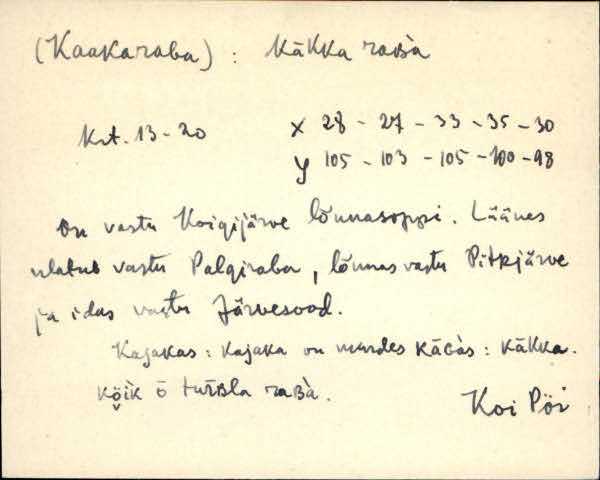 (Kaakaraba) : kākka raʙ̀a
Krt. 13-20
x 28 - 27 - 33 - 35 - 30
y 105 - 103 - 105 - 100 - 98
On vastu Koigijärve lõunasoppi. Läänes
ulatub vastu Palgiraba, lõunas vastu Pitkjärve
ja idas vastu Järvesood.
Kajakas : kajaka on murdes kāɢàs : kākka.
kõ̬ik ō turʙla raʙ̀a.
Koi Pöi